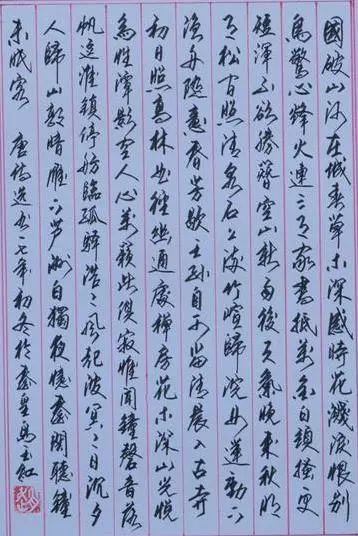 國破山河在城春草木深感時花濺淚恨別
鳥驚心烽火連三月家書抵萬金白頭搔更
短渾不欲勝簪空山新雨後天氣晚來秋明
月松間照清泉石上流竹喧歸浣女蓮動下
漁舟隨意春芳歇王孫自可留清晨入古寺
初日照高林曲徑幽通處禪房花木深山光悅
鳥性潭影空人心萬籟此俱寂惟聞鐘磬音落
帆逐淮鎮停舫臨孤驛浩〻風起波冥〻日沉夕
人歸山郭暗雁下芦洲白獨夜憶秦關聽鐘
未眠客 唐詩選 一七年初冬於秦皇島玉紅